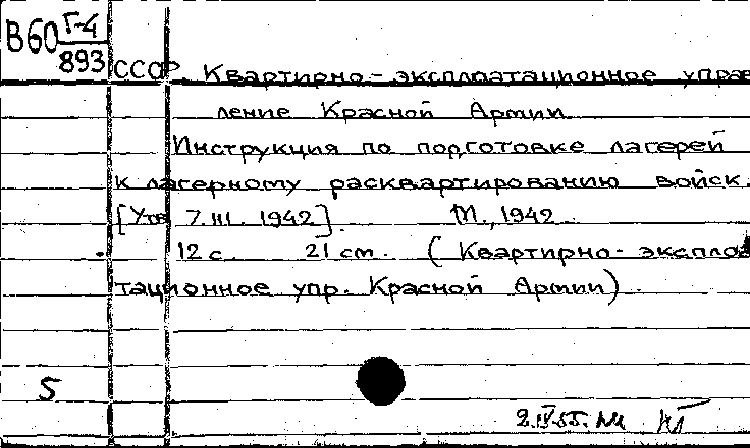 В60 Г-4
893
СССР. Квартирно-эксплоатационное управ
ление Красной Армии
Инструкция по подготовке лагерей
к лагерному расквартированию войск.
[Утв. 7.III. 1942]. М., 1942
12 с. 21 см. (Квартирно-эксплоа
тационное упр. Красной Армии).
5
2.IV.55.